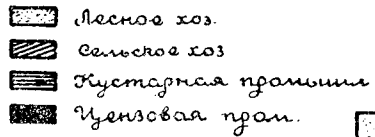 Лесное хоз.
Сельское хоз
Кустарная промышл
Цензовая пром.